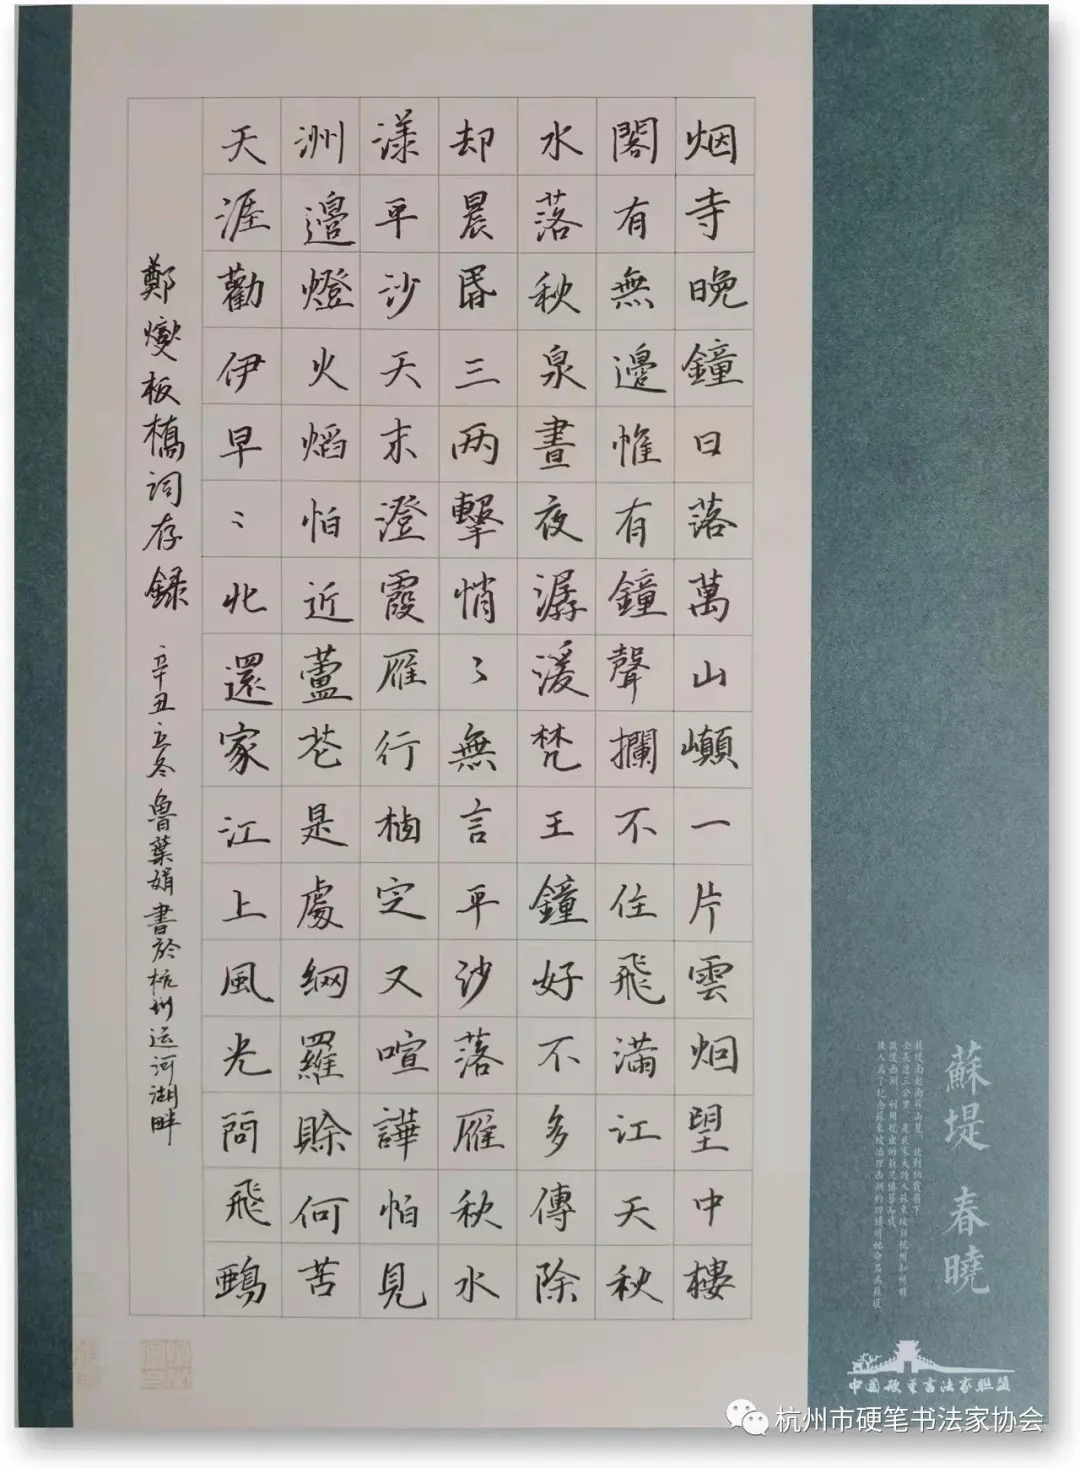 烟寺晚鐘日落萬山巔一片雲烟望中樓
閣有無邊惟有鐘聲攔不住飛滿江天秋
水落秋泉晝夜潺湲梵王鐘好不多傳除
却晨昏三两擊悄〻無言平沙落雁秋水
漾平沙天末澄霞雁行棲定又喧譁怕見
洲邊燈火焰怕近蘆花是處網羅賒何苦
天涯勸伊早〻北還家江上風光問飛鴉
鄭燮板橋词存錄
辛丑立冬魯葉娟書於杭州运河湖畔
蘇堤 春曉
中国硬笔书法家联盟
杭州市硬笔书法家协会